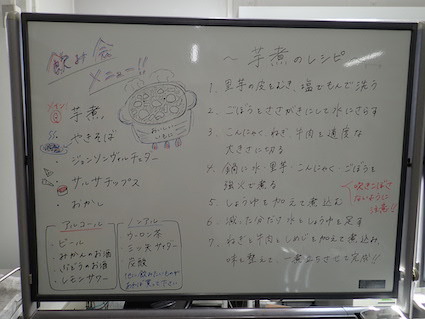 飲み会
メニュー!!
メイン
芋煮
やきそば
ジョンソンヴィルチェダー
サルサチップス
おかし
おいしい
いもに
アルコール
・ビール
・みかんのお酒
・ぶどうのお酒
・レモンサワー
ノンアル
・ウーロン茶
・三ツ矢サイダー
・炭酸
他に飲みたいものが
あれば買って下さい
～芋煮のレシピ
1. 里芋の皮をむき、塩でもんで洗う
2. ごぼうをささがきにして水にさらす
3. こんにゃく ねぎ、牛肉を適度な
大きさに切る
4. 鍋に水・里芋・こんにゃく・ごぼうを
強火で煮る
吹きこぼさ
ないように
注意!!
5. しょうゆを加えて煮込む
6. 減った分だけ水としょうゆを足す
7. ねぎと牛肉としめじを加えて煮込み、
味を整えて、一煮立ちさせて完成!!